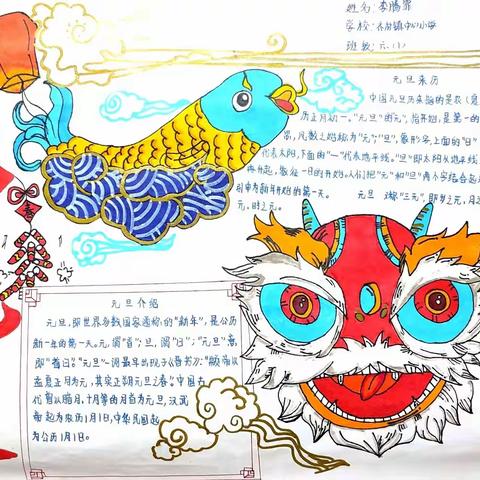 姓名:李腾霏
学校:乔村镇中心小学
班级:六.(1)
元旦来历
中国元旦历来指的是农(夏
历正月初一。"元旦"的"元",指开始,是第一的
凡数之始称为"元";"旦",象形字,上面的"日"
代表太阳,下面的"一"代表地平线。"旦"即太阳从地平线
再升起,象征一日的开始。人们把"元"和"旦"两个字结合起
引申为新年开始的第一天。 元旦 又称"三元",即岁之元,月之
元,时之元。
元旦介绍
元旦,即世界多数国家通称的"新年",是公历
新一年的第一天。元,谓"首";旦,谓"日";"元旦"意
即"首日"。"元旦"一词最早出现于《晋书》:"颛帝以
孟夏正月为元,其实正朔元旦之春。"中国古
代曾以腊月、十月等的月首为元旦,汉武
帝起为农历1月1日,中华民国起
为公历1月1日。